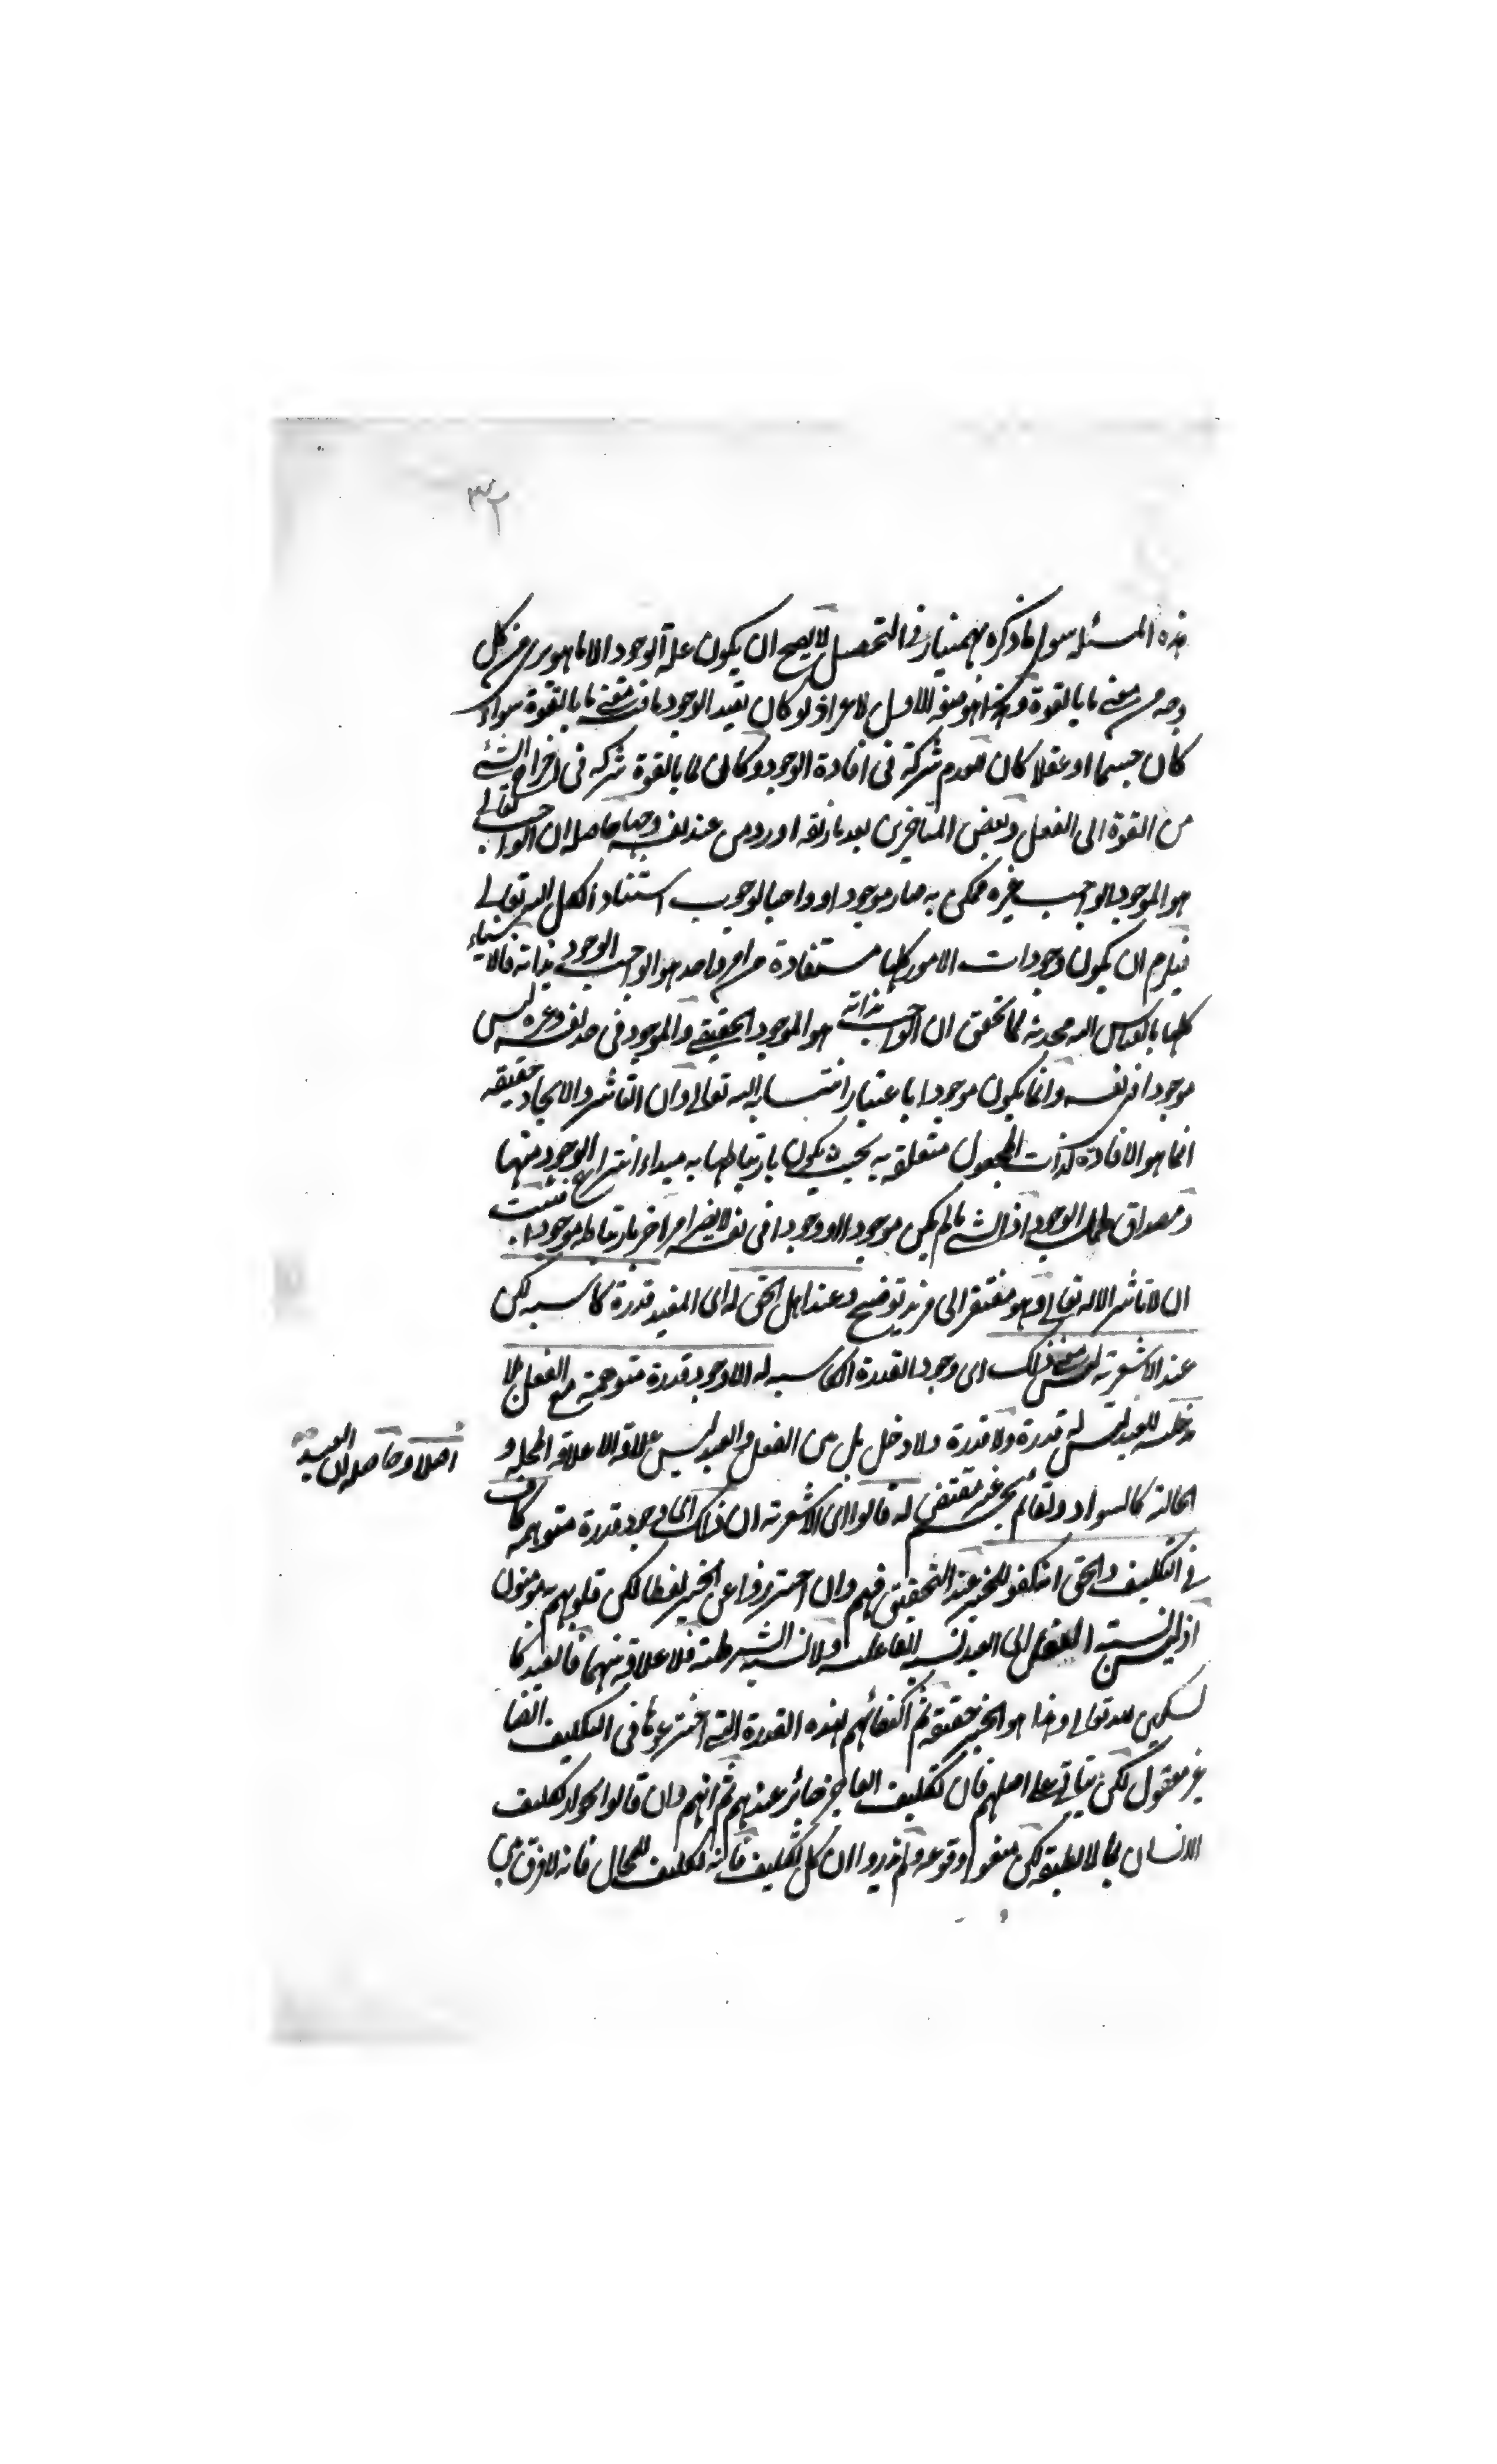 ٣٢
هذه المسئلة سوى ما ذكره بهمنيار في التحصيل لا يصح ان يكون علة الوجود الا ما هو برى من كل
وجه من معنى ما بالقوة وهذا هو صفة الاول لا غير اذ لو كان يفيد الوجود ما فيه معنى ما بالقوة سواء
كان جسما او عقلا كان للعدم شركة فى افادة الوجود وكان لما بالقوة شركه فى اخراج الشئ
من القوة الى الفعل وبعض المتاخرين بعد ما نقله اورد من عند نفسه وجها حاصله ان الواجب تعالى
هو الموجود الواجب غيره ممكن به صار موجودا وواجبا لوجوب استناد الكل اليه تعالى
فيلزم ان يكون وجودات الامور كلها مستفادة من امر واحد هو الواجب الوجود بذاته فالاشياء
كلها بالقياس اليه محدثة لما تحقق ان الواجب بذاته هو الموجود الحقيقى والموجود فى حد نفسه وغيره ليس
موجودا فى نفسه وانما يكون موجودا باعتبار انتسابه اليه تعالى وان التاثير والايجاد حقيقه
انما هو الافادة لذات المجعول متعلقة به بحيث يكون بارتباطها به مبداء انتزاع الوجود منها
ومصداق الوجود اذ الشئ ما لم يكن موجودا او وجودا فى نفسه لا يصير امر اخر بارتباطه موجودا فثبت
ان لا تاثير الا له تعالى وهو مفتقر الى مزيد توضيح وعند اهل الحق له اى المفيد قدرة كاسبه لكن
عند الاشعرية ليس معنى ذلك اى وجود القدرة الكاسبه له الا وجود قدرة متوهمة مع الفعل بلا
مدخلية للعبد ليس له قدرة ولا قدرة ولا دخل بل من الفعل والعبد ليس علاقة الا علاقه المحلية و
اصلا وحاصله ان العبد
الحالية كالسواد والقائم بجسم غير مقتضى له قالوا اى الاشعرية ان ذلك اى وجود قدرة متوهمه كاف
فى التكليف والحق انه كفو للجبر عند التحقيق فهم وان احترزوا عن الجبر لفظا لكن قلوبهم به مؤمنون
اذ ليس نسبة الفعل الى العبد نسبة الفاعليه ولا نسبة الشرطية فلا علاقة بينهما فالعبد كا
لسكين لله تعالى وهذا هو الجبر حقيقة ثم اكتفائهم بهذه القدرة التى اخترعوها فى التكليف ايضا
غير معقول لكن يتاتى على اصلهم فان تكليف العاجز جائز عندهم ثم انهم وان قالوا بجواز تكليف
الانسان بما لا يطيقه لكن منعوا وقوعه ولم يدروا ان كل تكليف فانه تكليف للمحال فانه لا فرق بين